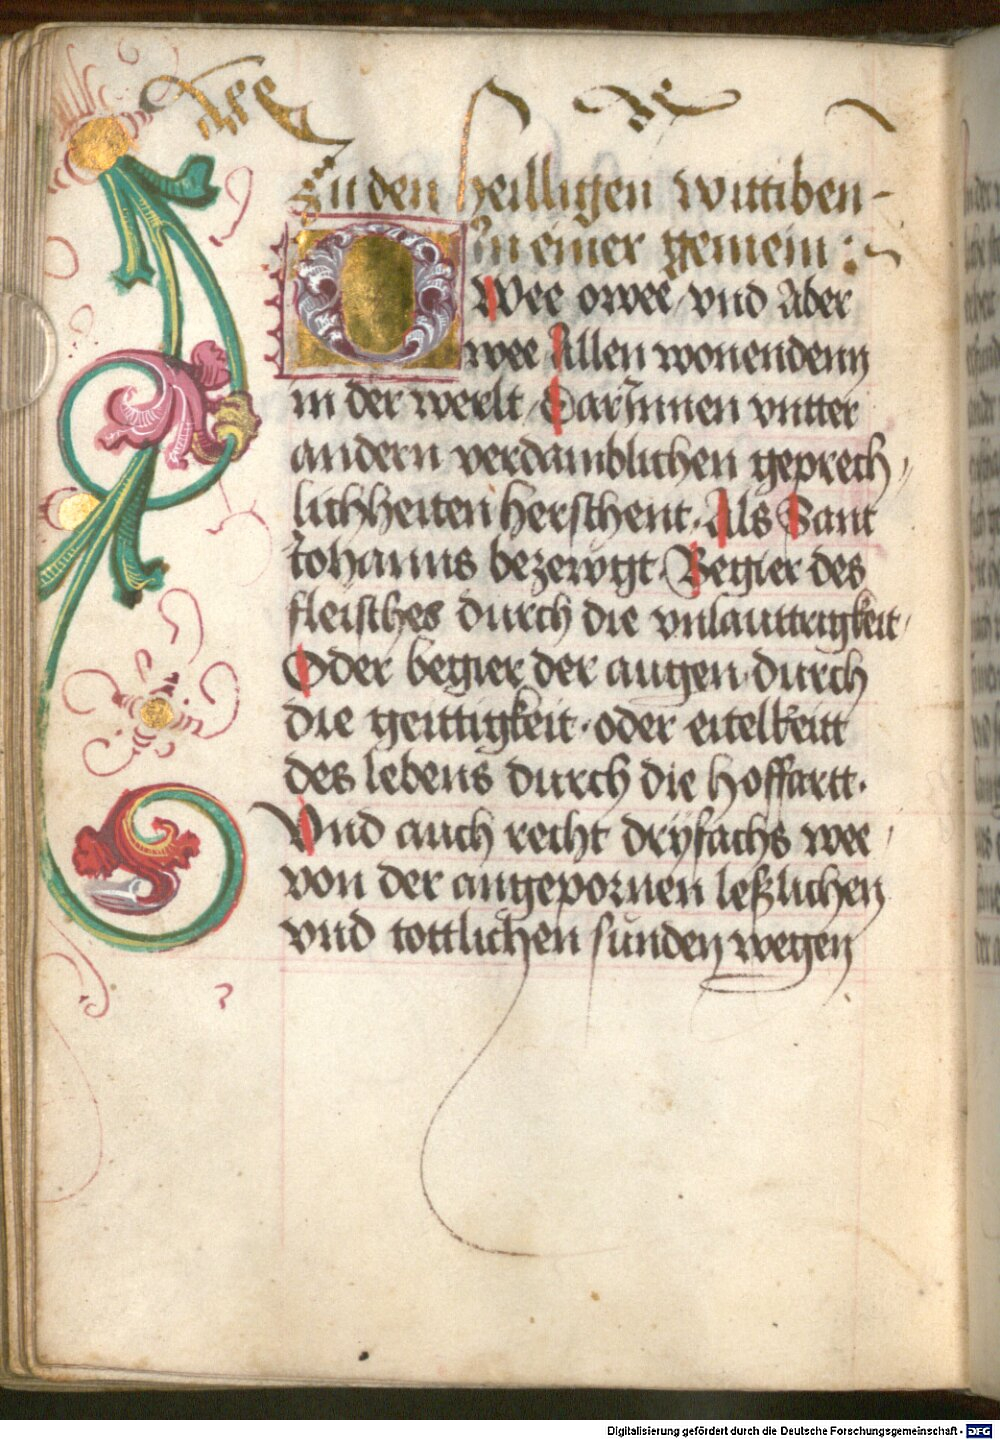 Zu den heilligen wittiben-
In einer gemein :~
O Wee owee / vnd Aber
wee Allen wonendenn
in der werlt / DarJnnen vntter
andern verdamblichen geprech /
lichheiten herschent. Als Sant
Johanns bezewgt. Begier des
fleisches durch die vnlauttrigkeit /
Oder begier der augen. durch
die geittigkeit. oder eitelkeitt
des lebens durch die hoffartt.
Vnd auch recht dryfachs wee /
von der angepornen leßlichen
vnd tottlichen sunden wegen
Digitalisierung gefördert durch die Deutsche Forschungsgemeinschaft - DFG